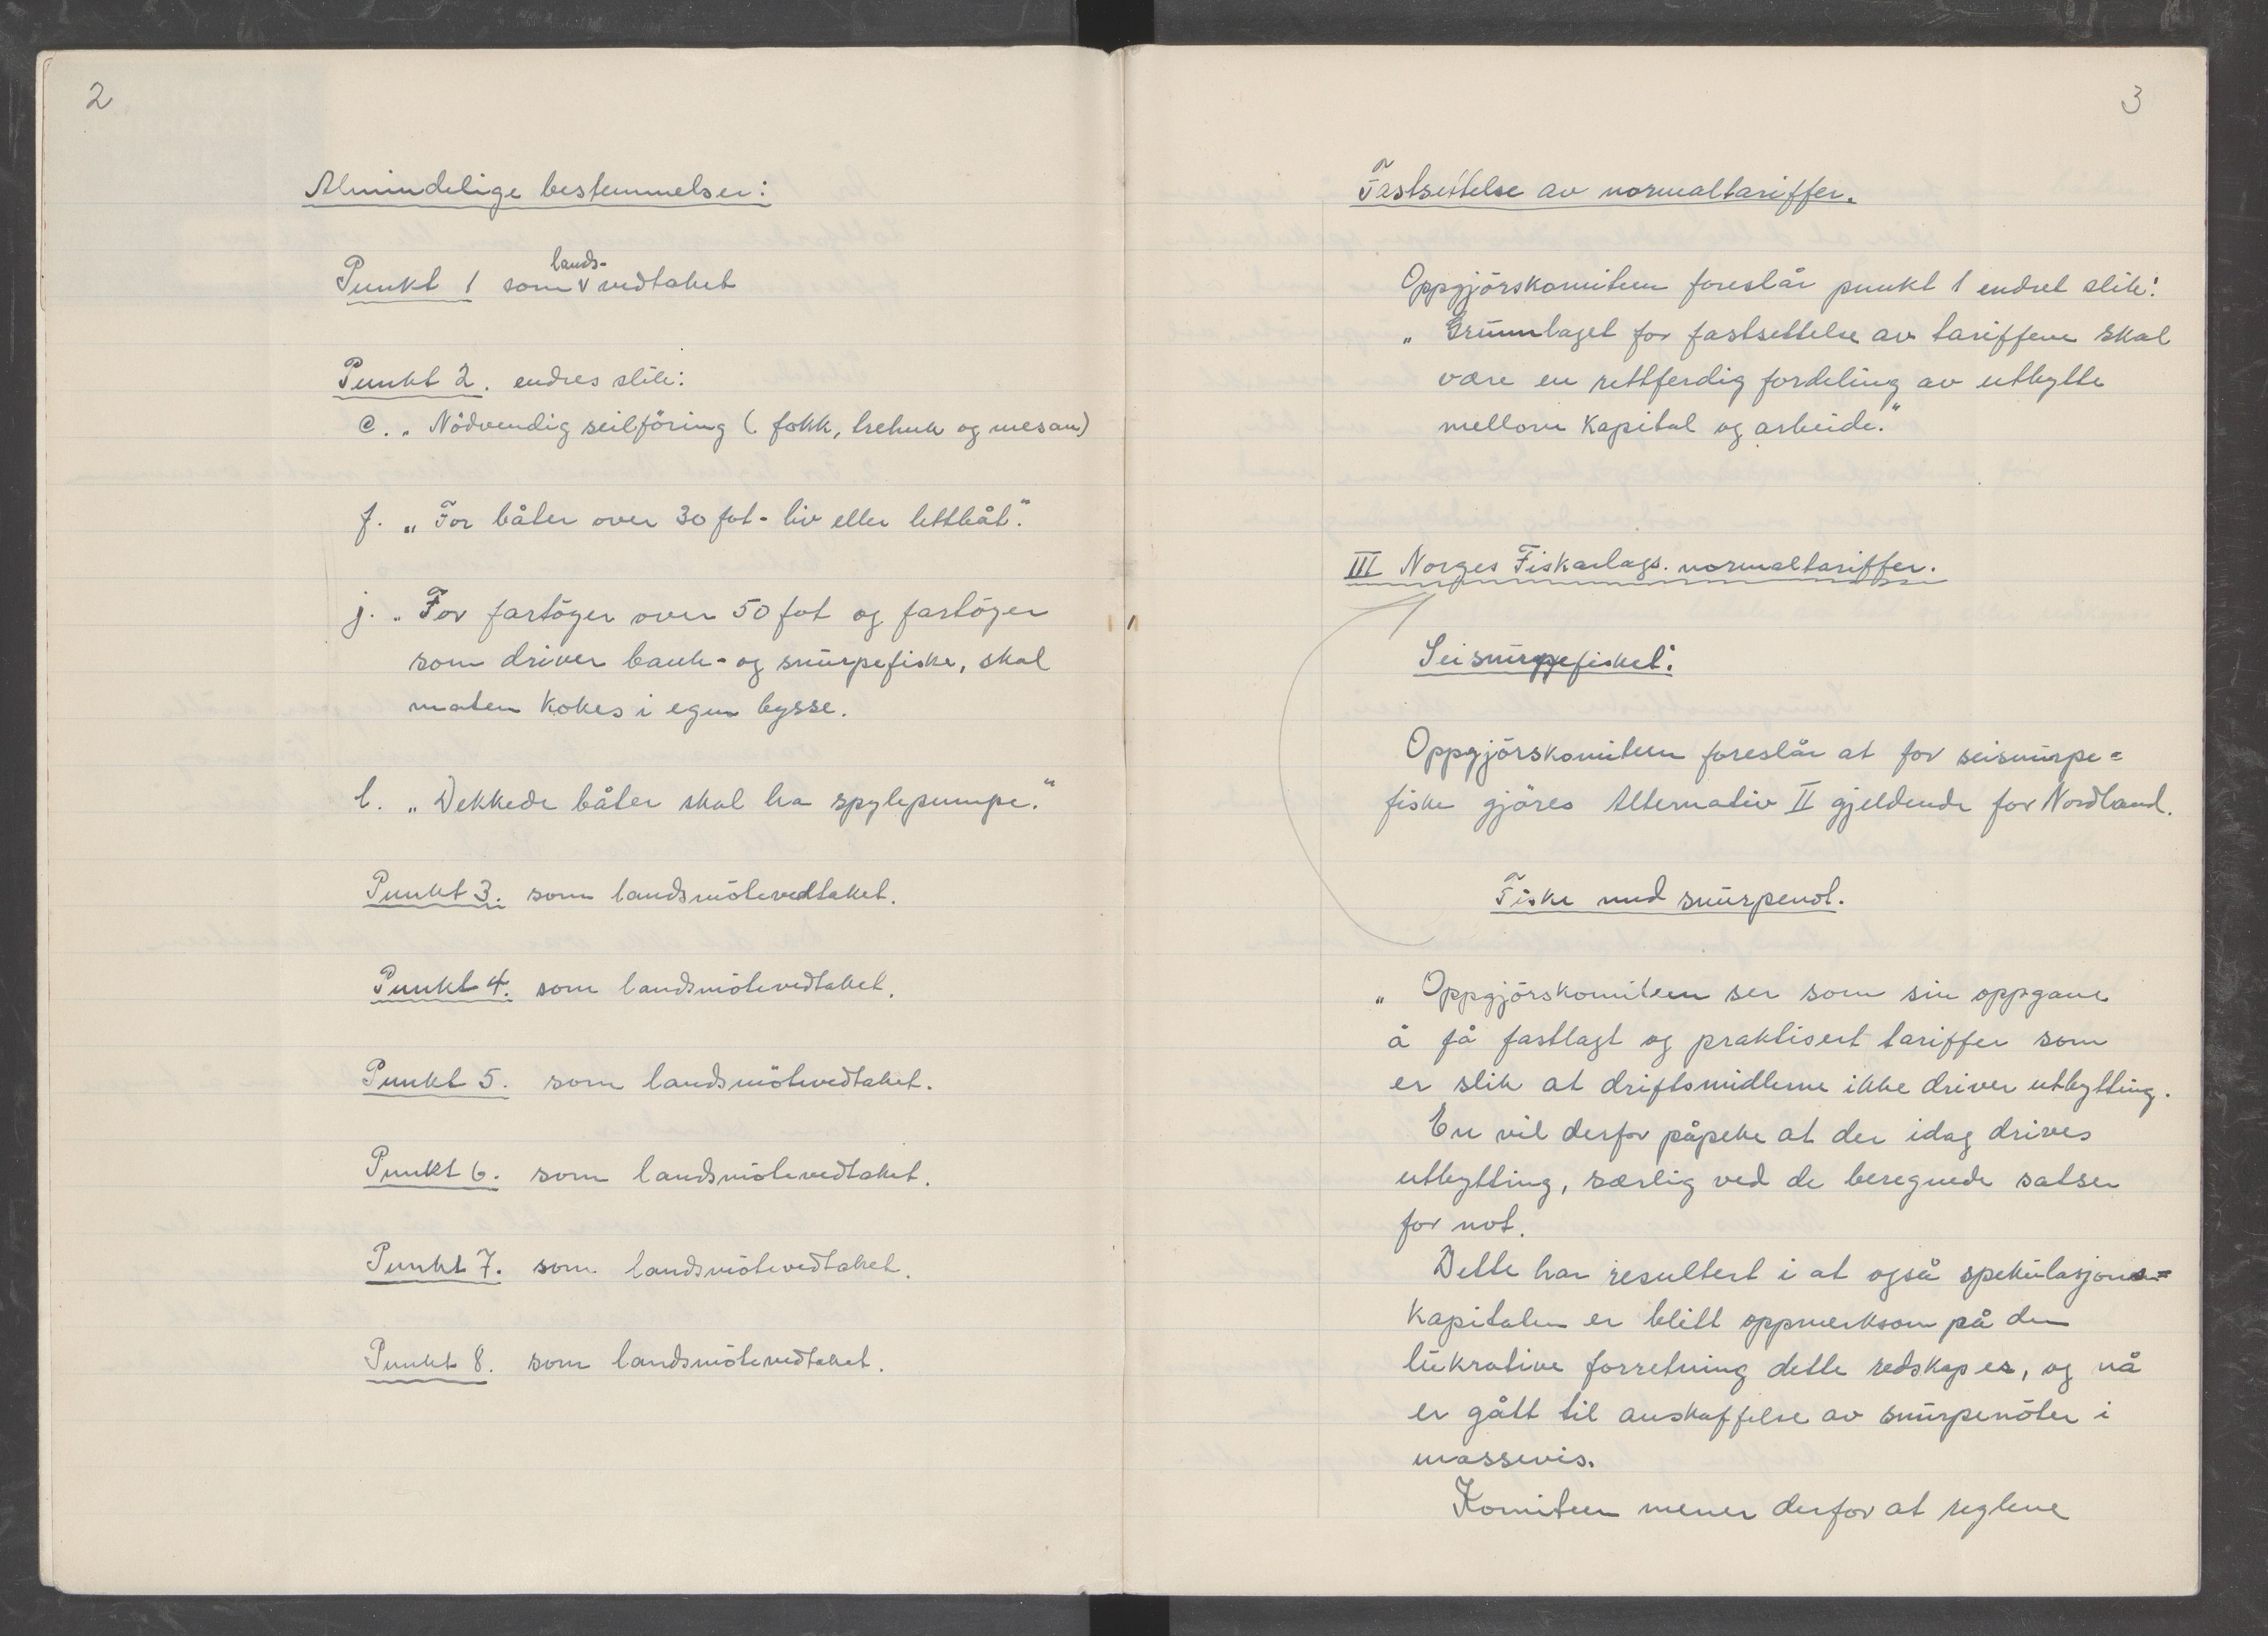 2
Almindelige bestemmelser:
Punkt 1 som lands-vedtaket
Punkt 2. endres slik:
e. „ Nödvendig seilföring (. fokk, trekuk og mesan)
f. „ For båter over 30 fot - liv eller lettbåt."
j. „ For fartöyer over 50 fot og fartöyer
som driver bank- og snurpefiske, skal
maten kokes i egen bysse.
l. „ Dekkede båter skal ha spylepumpe."
Punkt 3. som landsmötevedtaket.
Punkt 4. som landsmötevedtaket.
Punkt 5. som landsmötevedtaket.
Punkt 6. som landsmötevedtaket.
Punkt 7. som landsmötevedtaket.
Punkt 8. som landsmötevedtaket.
3
Fastsettelse av normaltariffer.
Oppgjörskomiteen foreslår punkt 1 endret slik:
„ Grunnlaget for fastsettelse av tariffene skal
være en rettferdig fordeling av utbytte
mellom kapital og arbeide."
III Norges Fiskarlags. normaltariffer.
Seisnurpefisket:
Oppgjörskomiteen foreslår at for seisnurpe=
fiske gjöres Alternativ II gjeldende for Nordland.
Fiske med snurpenot.
„ Oppgjörskomiteen ser som sin oppgave
å få fastlagt og praktisert tariffer som
er slik at driftsmidlerne ikke driver utbytting.
En vil derfor påpeke at der idag drives
utbytting, særlig ved de beregnede satser
for not.
Dette har resultert i at også spekulasjons=
kapitalen er blitt oppmerksom på den
lukrative forretning dette redskap er, og nå
er gått til anskaffelse av snurpenöter i
massevis.
Komiteen mener derfor at reglene